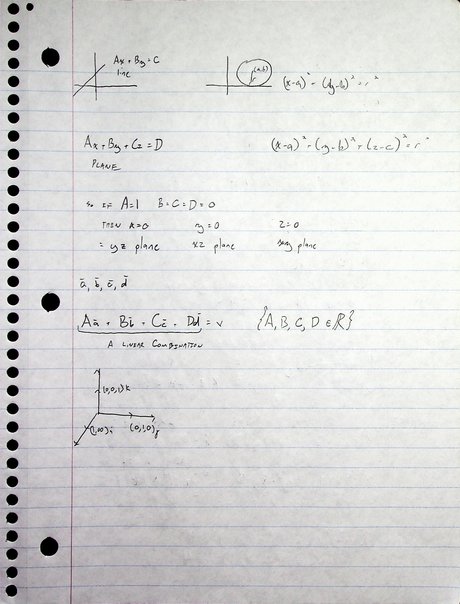 Ax + By = C
line
(a,b)
r
(x-a)² - (y-b)² = r²
Ax + By + Cz = D
PLANE
(x-a)² - (y-b)² + (z-c)² = r²
so IF A=1 B=C=D=0
THEN x=0 y=0 z=0
= yz plane xz plane xy plane
ā, b̄, c̄, d̄
Aā + Bb̄ + Cc̄ + Dd̄ = v {A, B, C, D ∈ R}
A LINEAR COMBINATION
(0,0,1) k
(1,0,0) i (0,1,0) j